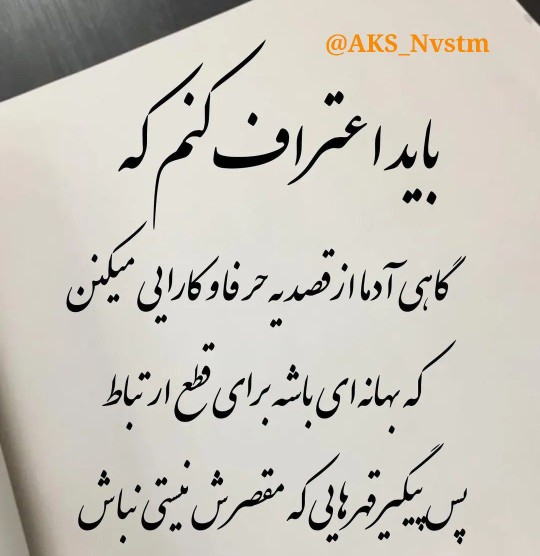 @AKS_Nvstm
باید اعتراف کنم که
گاهی آدما از قصد یه حرفا و کارایی میکنن
که بهانه‌ای باشه برای قطع ارتباط
پس پیگیر قهرهایی که مقصرش نیستی نباش